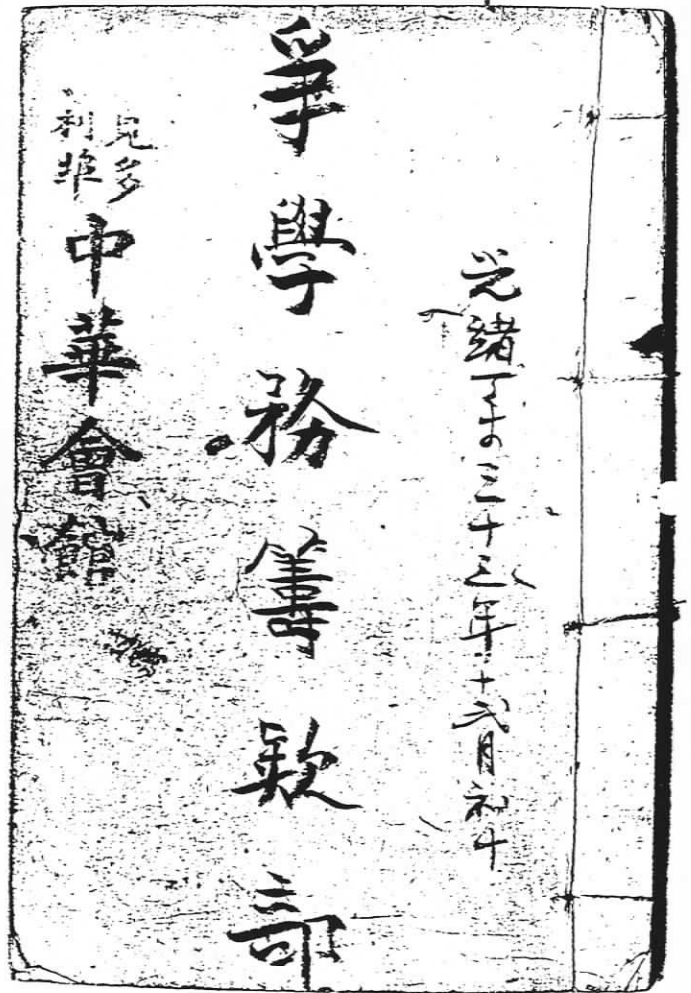 光緒三十三年十弍月初十
爭學務籌欵部
多利埠中華會館